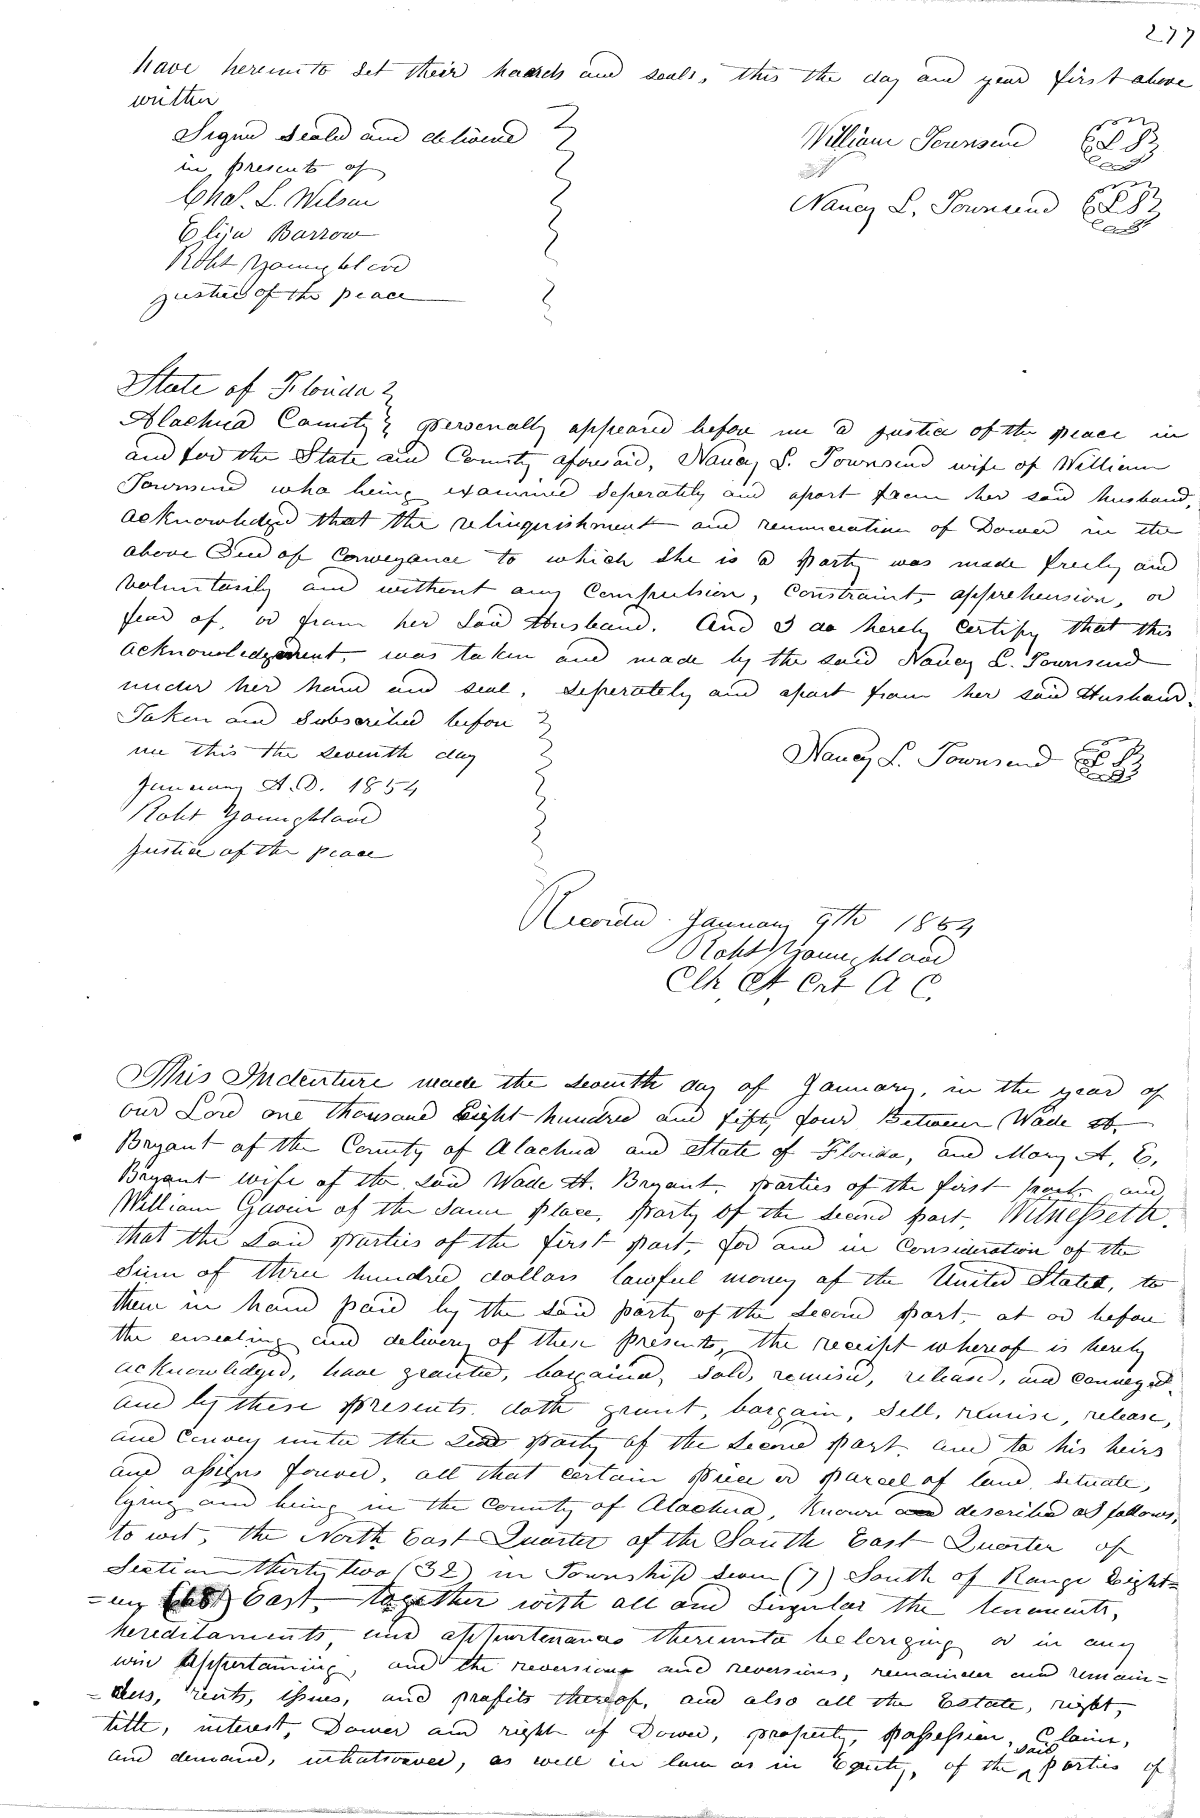 277
have hereunto set their hands and seals, this the day and year first above
written
Signed Sealed and delivered
in presents of
Chas. L. Wilson
Elija Barrow
Robt Youngblood
justice of the peace
William Townsend LS
Nancy L. Townsend LS
State of Florida
Alachua County personally appeared before me a justice of the peace in
and for the State and County aforesaid, Nancy L. Townsend wife of William
Townsend who being examined seperately and apart from her said husband,
acknowledged that the relinquishment and renunciation of Dower in the
above Deed of Conveyance to which she is a party was made freely and
voluntarily and without any compulsion, constraint, apprehension, or
fear of, or from her said Husband. And I do hereby certify that this
acknowledgement, was taken and made by the said Nancy L. Townsend
under her hand and seal, seperately and apart from her said Husband.
Taken and Subscribed before
me this the seventh day
January A.D. 1854
Robt Youngblood
justice of the peace
Nancy L. Townsend LS
Recorded January 9th 1854
Robt Youngblood
Clk Ct Crt A C.
This Indenture made the seventh day of January, in the year of
our Lord one thousand Eight hundred and fifty four Between Wade H.
Bryant of the County of Alachua and State of Florida, and Mary A. E.
Bryant wife of the said Wade H. Bryant, parties of the first part, and
William Gavin of the same place, party of the second part, Witnesseth,
that the said parties of the first part, for and in consideration of the
Sum of three hundred dollars lawful money of the United States, to
them in hand paid by the said party of the second part, at or before
the ensealing and delivery of these presents, the receipt whereof is hereby
acknowledged, have granted, bargained, sold, remised, release, and conveyed,
and by these presents doth grant, bargain, sell, remise, release,
and convey unto the said party of the second part, and to his heirs
and assigns forever, all that certain piece or parcel of land situate,
lying and being in the County of Alachua, known and described as follows,
to wit, the North East Quarter of the South East Quarter of
Section thirty two (32) in Township seven (7) South of Range Eight=
=een (18) East, together with all and singular the tenements,
hereditaments, and appurtenances thereunto belonging or in any
wise appertaining, and the reversions and reversions, remainder and remain=
=ders, rents, issues, and profits thereof, and also all the Estate, right,
title, interest, Dower and right of Dower, property, possession, Claim,
and demand, whatsoever, as well in law as in Equity, of the said parties of